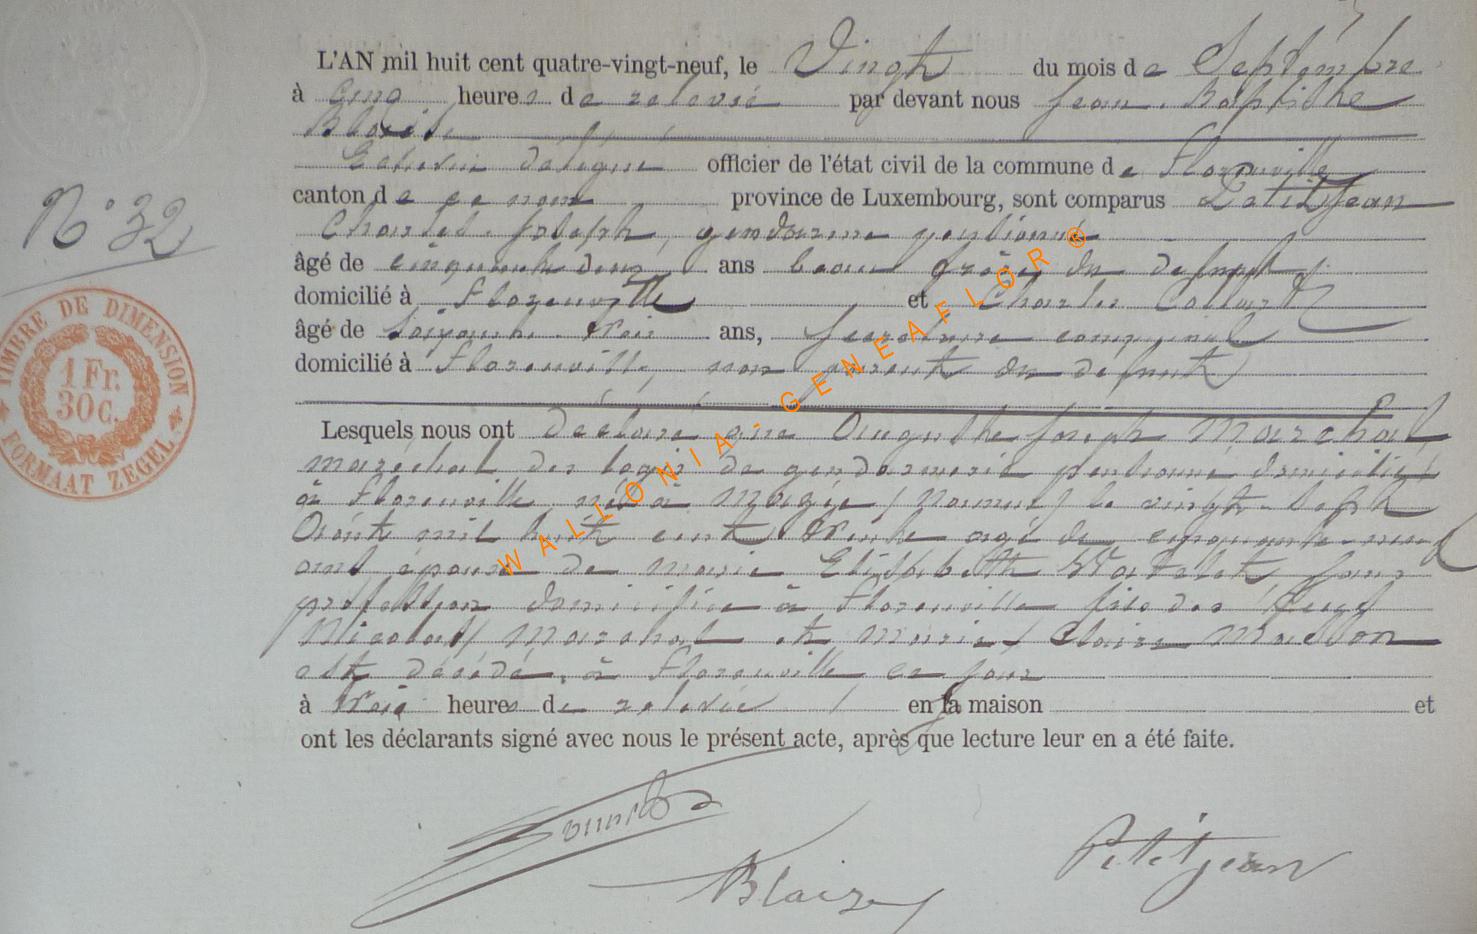 L'AN mil huit cent quatre-vingt-neuf, le Vingt du mois de Septembre
à cinq heures de relevée par devant nous Jean-Baptiste
Blaise
Echevin délégué officier de l'état civil de la commune de Florenville
canton de ce nom province de Luxembourg, sont comparus Petitjean
Charles Joseph, gendarme pensionné
âgé de cinquante deux ans beau frère du defunt
domicilié à Florenville et Charles Collart
âgé de soixante trois ans, secrétaire communal
domicilié à Florenville, non parent du défunt
N° 32
TIMBRE DE DIMENSION
1 Fr.
30 C.
FORMAAT ZEGEL
Lesquels nous ont déclaré que Auguste Joseph Marechal
maréchal des logis de gendarmerie pensionné domicilié
à Florenville né à (Namur) le vingt-sept
Août mil huit cent trente agé de cinquante-neuf
ans époux de Marie Elisabeth Watelet sans
profession domiciliée à Florenville fils des
Nicolas Marechal et Marie Claire Masson
est décédé à Florenville ce jour
à trois heures de relevée en la maison et
ont les déclarants signé avec nous le présent acte, après que lecture leur en a été faite.
Blaise
Petitjean
WALLONIA - GENEAFLOR ®